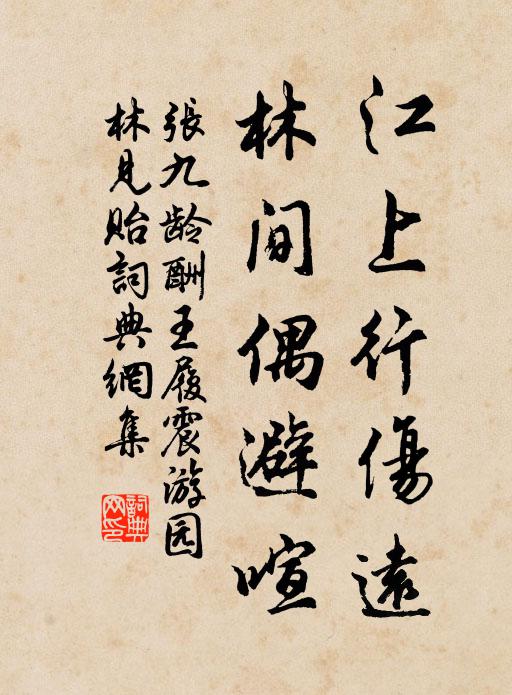 江上行傷遠
林間偶避喧
張九齡酬王履震游园
林見貽詞典網集
詞典
网印